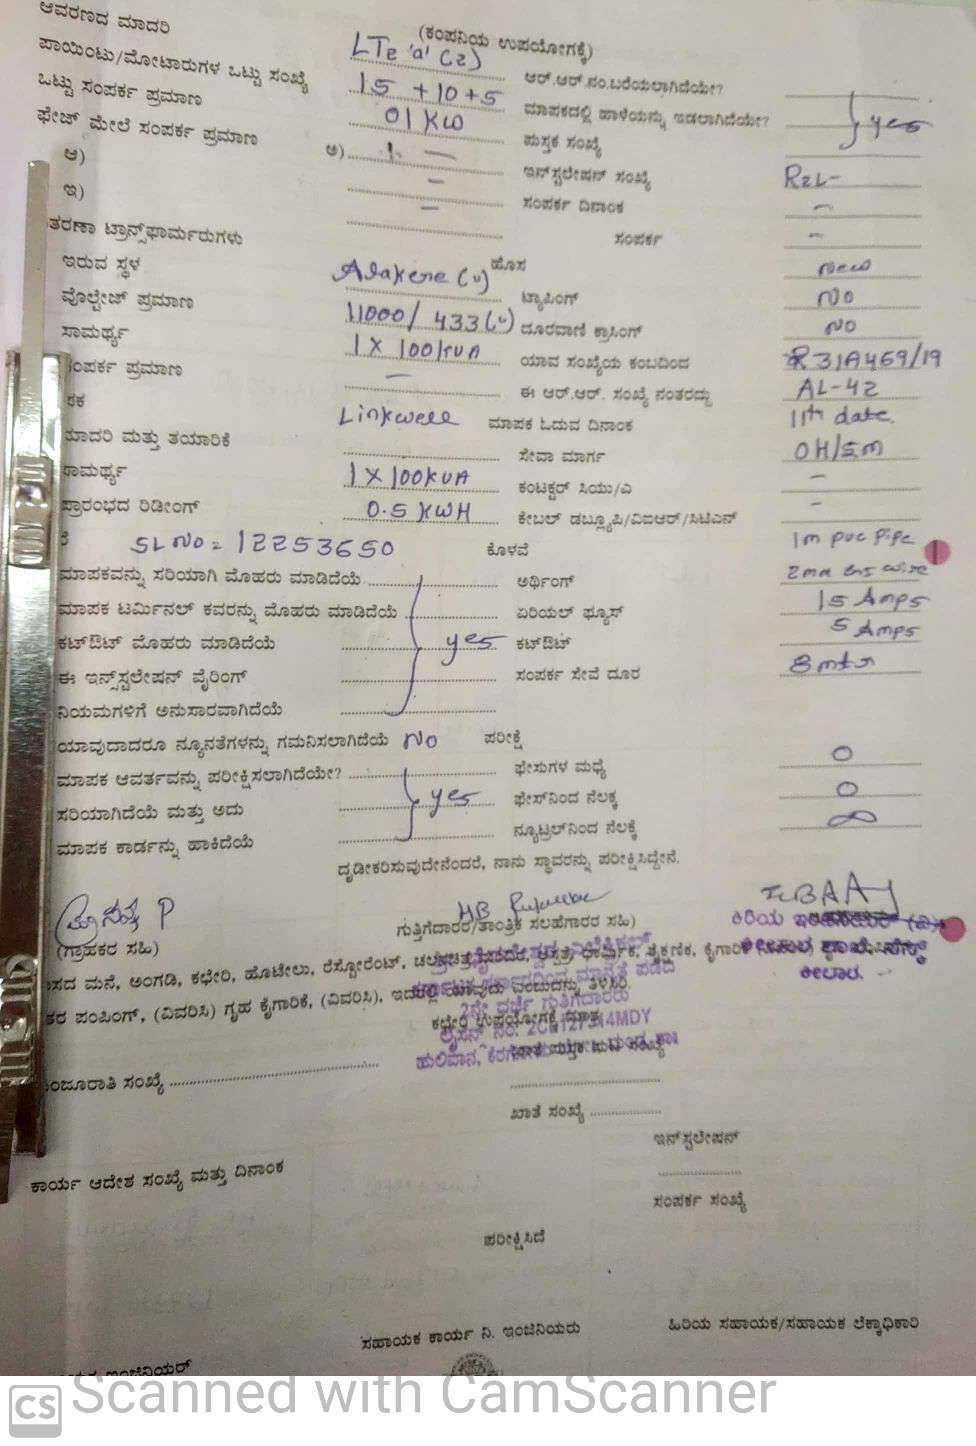 ಆವರಣದ ಮಾದರಿ LTe 'a' (2) (ಕಂಪನಿಯ ಉಪಯೋಗಕ್ಕೆ)
ಪಾಯಿಂಟು/ಮೋಟಾರುಗಳ ಒಟ್ಟು ಸಂಖ್ಯೆ 15 +10+5 ಆರ್.ಆರ್.ನಂ.ಬರೆಯಲಾಗಿದೆಯೇ?
ಒಟ್ಟು ಸಂಪರ್ಕ ಪ್ರಮಾಣ 01 KW ಮಾಪಕದಲ್ಲಿ ಹಾಳೆಯನ್ನು ಇಡಲಾಗಿದೆಯೇ? yes
ಫೇಜ್ ಮೇಲೆ ಸಂಪರ್ಕ ಪ್ರಮಾಣ ಅ) 1 - ಪುಸ್ತಕ ಸಂಖ್ಯೆ
ಆ) - ಇನ್‌ಸ್ಟಲೇಷನ್ ಸಂಖ್ಯೆ R2L-
ಇ) - ಸಂಪರ್ಕ ದಿನಾಂಕ -
ತರಣಾ ಟ್ರಾನ್ಸ್‌ಫಾರ್ಮರುಗಳು ಸಂಪರ್ಕ -
ಇರುವ ಸ್ಥಳ Alakere (v) ಹೊಸ new
ವೋಲ್ಟೇಜ್ ಪ್ರಮಾಣ 11000/433(v) ಟ್ಯಾಪಿಂಗ್ NO
ಸಾಮರ್ಥ್ಯ 1 X 100kVA ದೂರವಾಣಿ ಕ್ರಾಸಿಂಗ್ NO
ಂಪರ್ಕ ಪ್ರಮಾಣ - ಯಾವ ಸಂಖ್ಯೆಯ ಕಂಬದಿಂದ R31A469/19
ಪಕ ಈ ಆರ್.ಆರ್. ಸಂಖ್ಯೆ ನಂತರದ್ದು AL-42
ಮಾದರಿ ಮತ್ತು ತಯಾರಿಕೆ Linkwell ಮಾಪಕ ಓದುವ ದಿನಾಂಕ 11th date.
ಸೇವಾ ಮಾರ್ಗ OH/SM
ಸಾಮರ್ಥ್ಯ 1 X 100KVA ಕಂಟಕ್ಟರ್ ಸಿಯು/ಎ -
ಪ್ರಾರಂಭದ ರಿಡೀಂಗ್ 0.5 KWH ಕೇಬಲ್ ಡಬ್ಲ್ಯೂಪಿ/ವಿಐಆರ್/ಸಿಟಿಎನ್ -
SL NO = 12253650 ಕೊಳವೆ 1m pvc Pipe
ಮಾಪಕವನ್ನು ಸರಿಯಾಗಿ ಮೊಹರು ಮಾಡಿದೆಯೆ ಅರ್ಥಿಂಗ್ 2mm GI wire
ಮಾಪಕ ಟರ್ಮಿನಲ್ ಕವರನ್ನು ಮೊಹರು ಮಾಡಿದೆಯೆ ಏರಿಯಲ್ ಫ್ಯೂಸ್ 15 Amps
ಕಟ್‌ಔಟ್ ಮೊಹರು ಮಾಡಿದೆಯೆ yes ಕಟ್‌ಔಟ್ 5 Amps
ಈ ಇನ್ಸ್‌ಸ್ಟಲೇಷನ್ ವೈರಿಂಗ್ ಸಂಪರ್ಕ ಸೇವೆ ದೂರ 8mtr
ನಿಯಮಗಳಿಗೆ ಅನುಸಾರವಾಗಿದೆಯೆ
ಯಾವುದಾದರೂ ನ್ಯೂನತೆಗಳನ್ನು ಗಮನಿಸಲಾಗಿದೆಯೆ NO ಪರೀಕ್ಷೆ
ಮಾಪಕ ಆವರ್ತವನ್ನು ಪರೀಕ್ಷಿಸಲಾಗಿದೆಯೇ? ಫೇಸುಗಳ ಮಧ್ಯೆ 0
ಸರಿಯಾಗಿದೆಯೆ ಮತ್ತು ಅದು yes ಫೇಸ್‌ನಿಂದ ನೆಲಕ್ಕೆ 0
ಮಾಪಕ ಕಾರ್ಡನ್ನು ಹಾಕಿದೆಯೆ ನ್ಯೂಟ್ರಲ್‌ನಿಂದ ನೆಲಕ್ಕೆ ∞
ದೃಡೀಕರಿಸುವುದೇನೆಂದರೆ, ನಾನು ಸ್ಥಾವರನ್ನು ಪರೀಕ್ಷಿಸಿದ್ದೇನೆ.
(ಗ್ರಾಹಕರ ಸಹಿ) ಗುತ್ತಿಗೆದಾರರ/ತಾಂತ್ರಿಕ ಸಲಹೆಗಾರರ ಸಹಿ)
ಸದ ಮನೆ, ಅಂಗಡಿ, ಕಛೇರಿ, ಹೊಟೇಲು, ರೆಸ್ಟೋರೆಂಟ್, ಆಸ್ಪತ್ರೆ, ಧಾರ್ಮಿಕ, ಶೈಕ್ಷಣಿಕ, ಕೈಗಾರಿಕೆ
ಪಂಪಿಂಗ್, (ವಿವರಿಸಿ) ಗೃಹ ಕೈಗಾರಿಕೆ, (ವಿವರಿಸಿ), ಇದರಲ್ಲಿ ಯಾವುದು ಎಂಬುದನ್ನು ತಿಳಿಸಿರಿ.
ಕಛೇರಿ ಉಪಯೋಗಕ್ಕೆ ಮಾತ್ರ
2ನೇ ದರ್ಜೆ ಗುತ್ತಿಗೆದಾರರು
ಮಂಜೂರಾತಿ ಸಂಖ್ಯೆ
ಖಾತೆ ಸಂಖ್ಯೆ
ಇನ್‌ಸ್ಟಲೇಷನ್
ಕಾರ್ಯ ಆದೇಶ ಸಂಖ್ಯೆ ಮತ್ತು ದಿನಾಂಕ
ಸಂಪರ್ಕ ಸಂಖ್ಯೆ
ಪರೀಕ್ಷಿಸಿದೆ
ಸಹಾಯಕ ಕಾರ್ಯ ನಿ. ಇಂಜಿನಿಯರು ಹಿರಿಯ ಸಹಾಯಕ/ಸಹಾಯಕ ಲೆಕ್ಕಾಧಿಕಾರಿ
CS Scanned with CamScanner